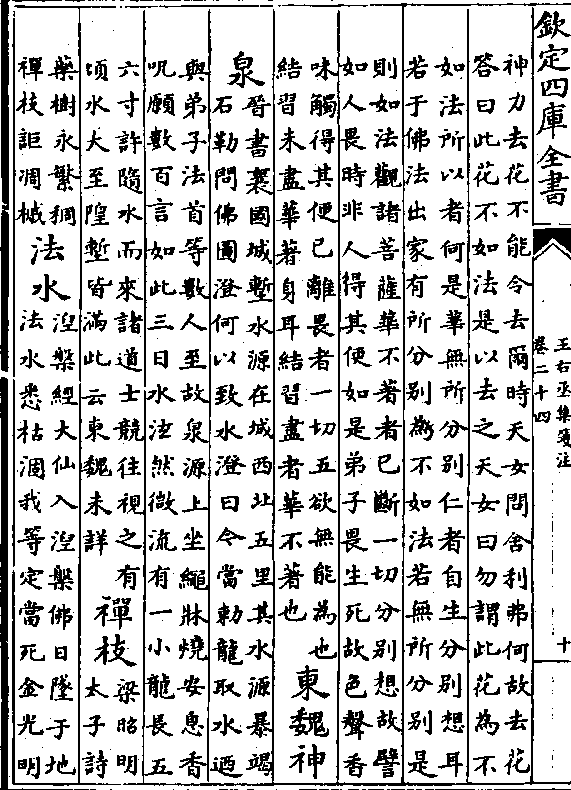 欽定四庫全書
王右丞集箋注
卷二十四
十
神力去花不能令去爾時天女問舍利弗何故去花
答曰此花不如法是以去之天女曰勿謂此花為不
如法所以者何是華無所分別仁者自生分別想耳
若于佛法出家有所分別為不如法若無所分別是
則如法觀諸菩薩華不著者已斷一切分別想故譬
如人畏時非人得其便如是弟子畏生死故色聲香
味觸得其便已離畏者一切五欲無能為也
結習未盡華著身耳結習盡者華不著也
東魏神
泉
晉書襄國城塹水源在城西北五里其水源暴竭
石勒問佛圖澄何以致水澄曰今當勅龍取水迺
與弟子法首等數人至故泉源上坐繩牀燒安息香
呪願數百言如此三日水泫然微流有一小龍長五
六寸許隨水而來諸道士競往視之有
頃水大至隍塹皆滿此云東魏未詳
禪枝
梁昭明
太子詩
藥樹永繁稠
禪枝詎凋槭
法水
涅槃經大仙入涅槃佛日墜于地
法水悉枯涸我等定當死金光明